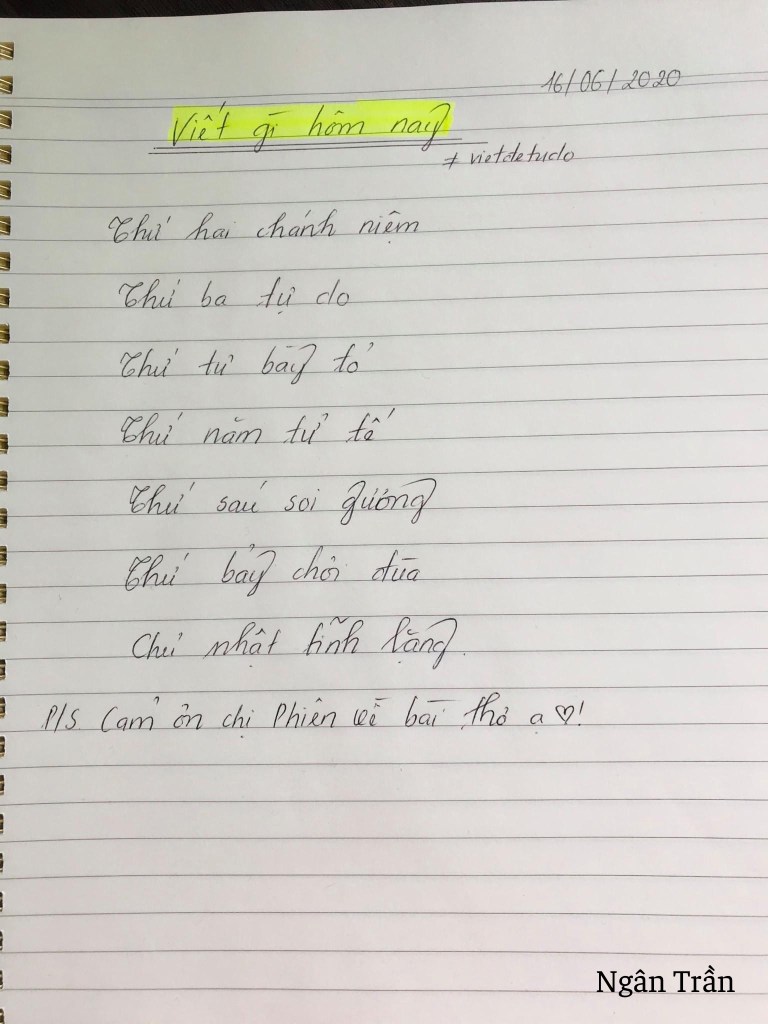 16/06/2020
Viết gì hôm nay
# vietdetudo
Thứ hai chánh niệm
Thứ ba tự do
Thứ tư bày tỏ
Thứ năm tử tế
Thứ sáu soi gương
Thứ bảy chơi đùa
Chủ nhật tĩnh lặng.
P/S Cảm ơn chị Phiên về bài thơ ạ ♡!
Ngân Trần